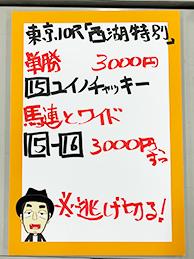 東京10R「西湖特別」
単勝 3000円
15ユイノチャッキー
馬連とワイド
15-16 3000円ずつ
※逃げ切る！